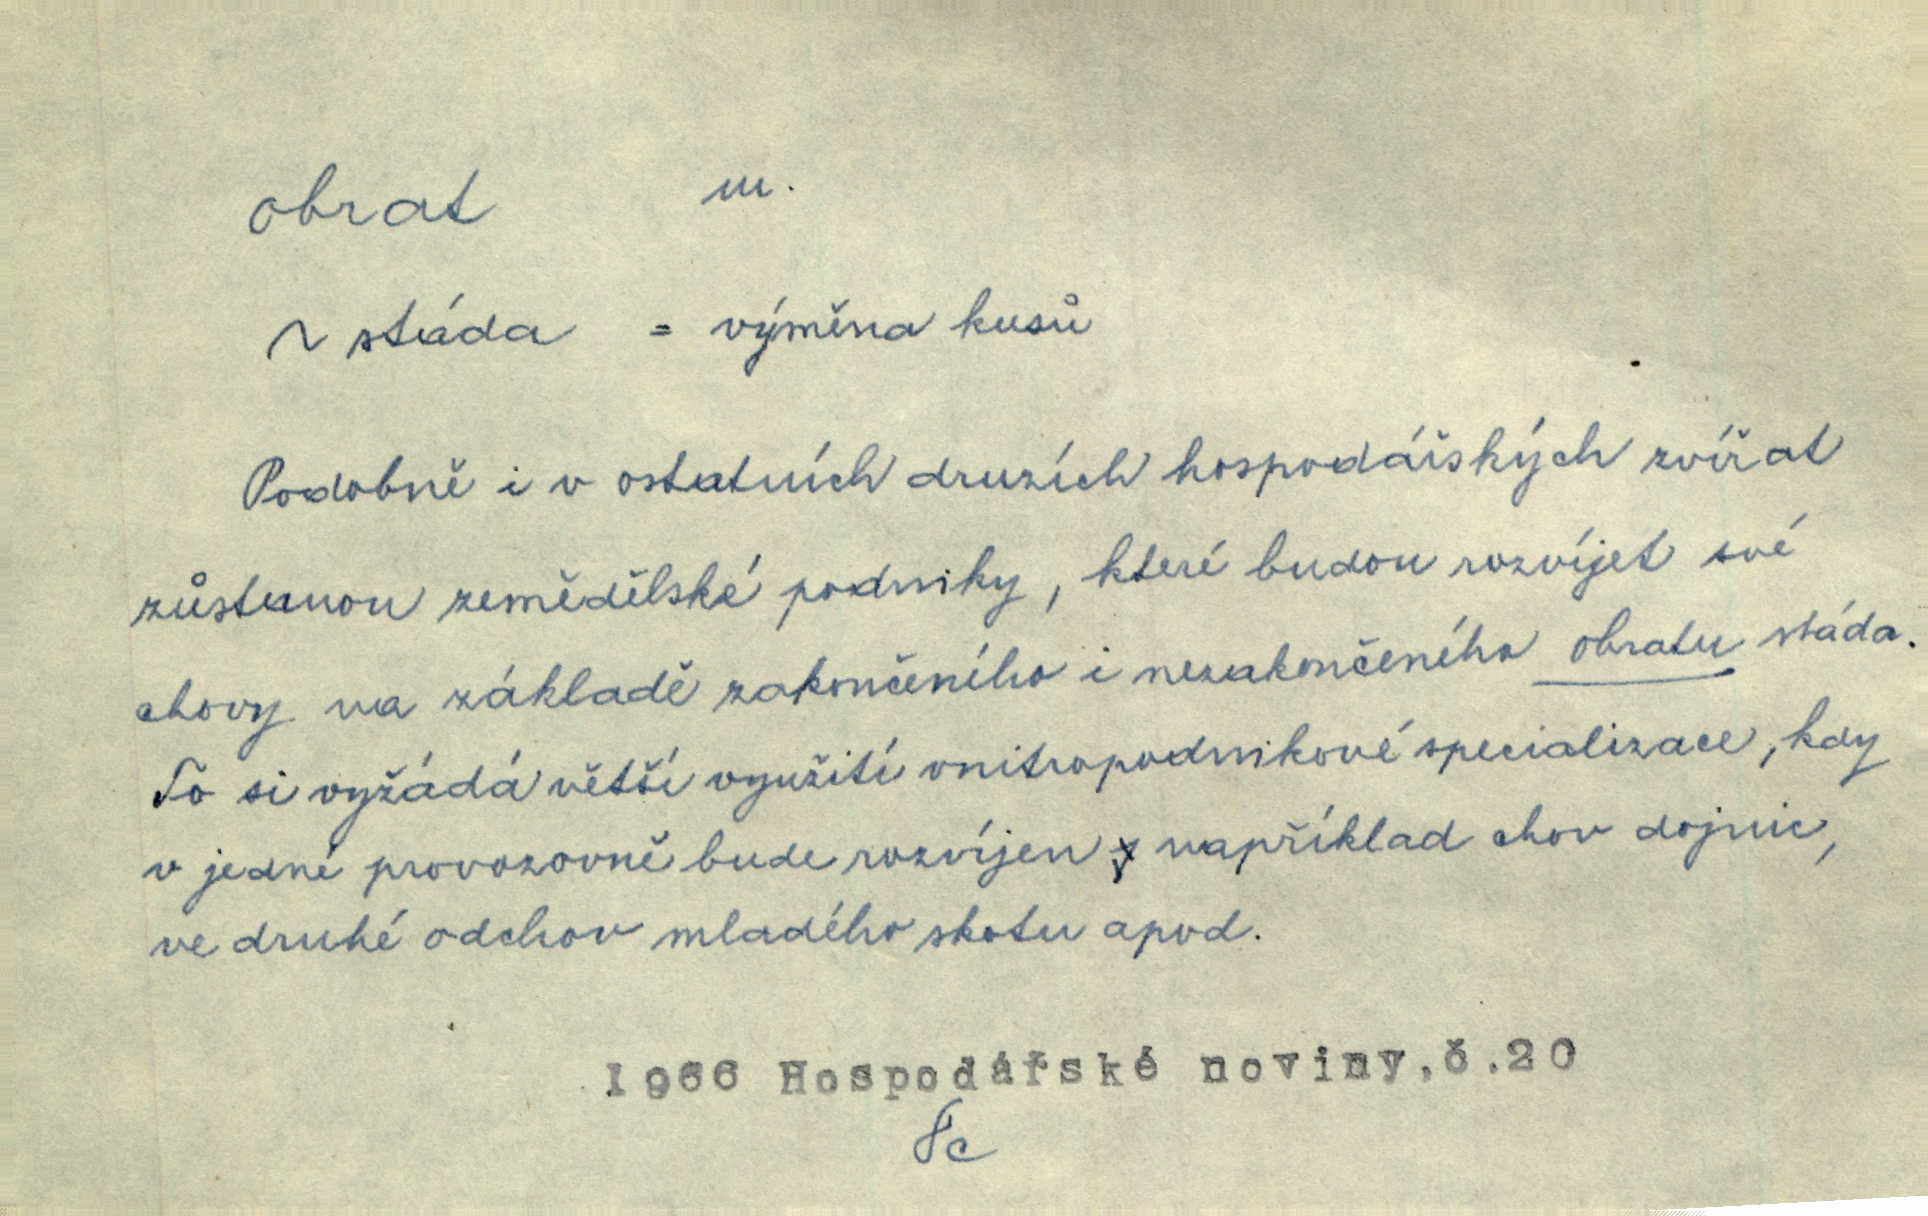 obrat m.
~ stáda = výměna kusů
Podobně i v ostatních druzích hospodářských zvířat
zůstanou zemědělské podniky, které budou rozvíjet své
chovy na základě zakončeného i nezakončeného obratu stáda.
To si vyžádá větší využití vnitropodnikové specializace, kdy
v jedné provozovně bude rozvíjen například chov dojnic,
ve druhé odchov mladého skotu apod.
1966 Hospodářské noviny,č.20